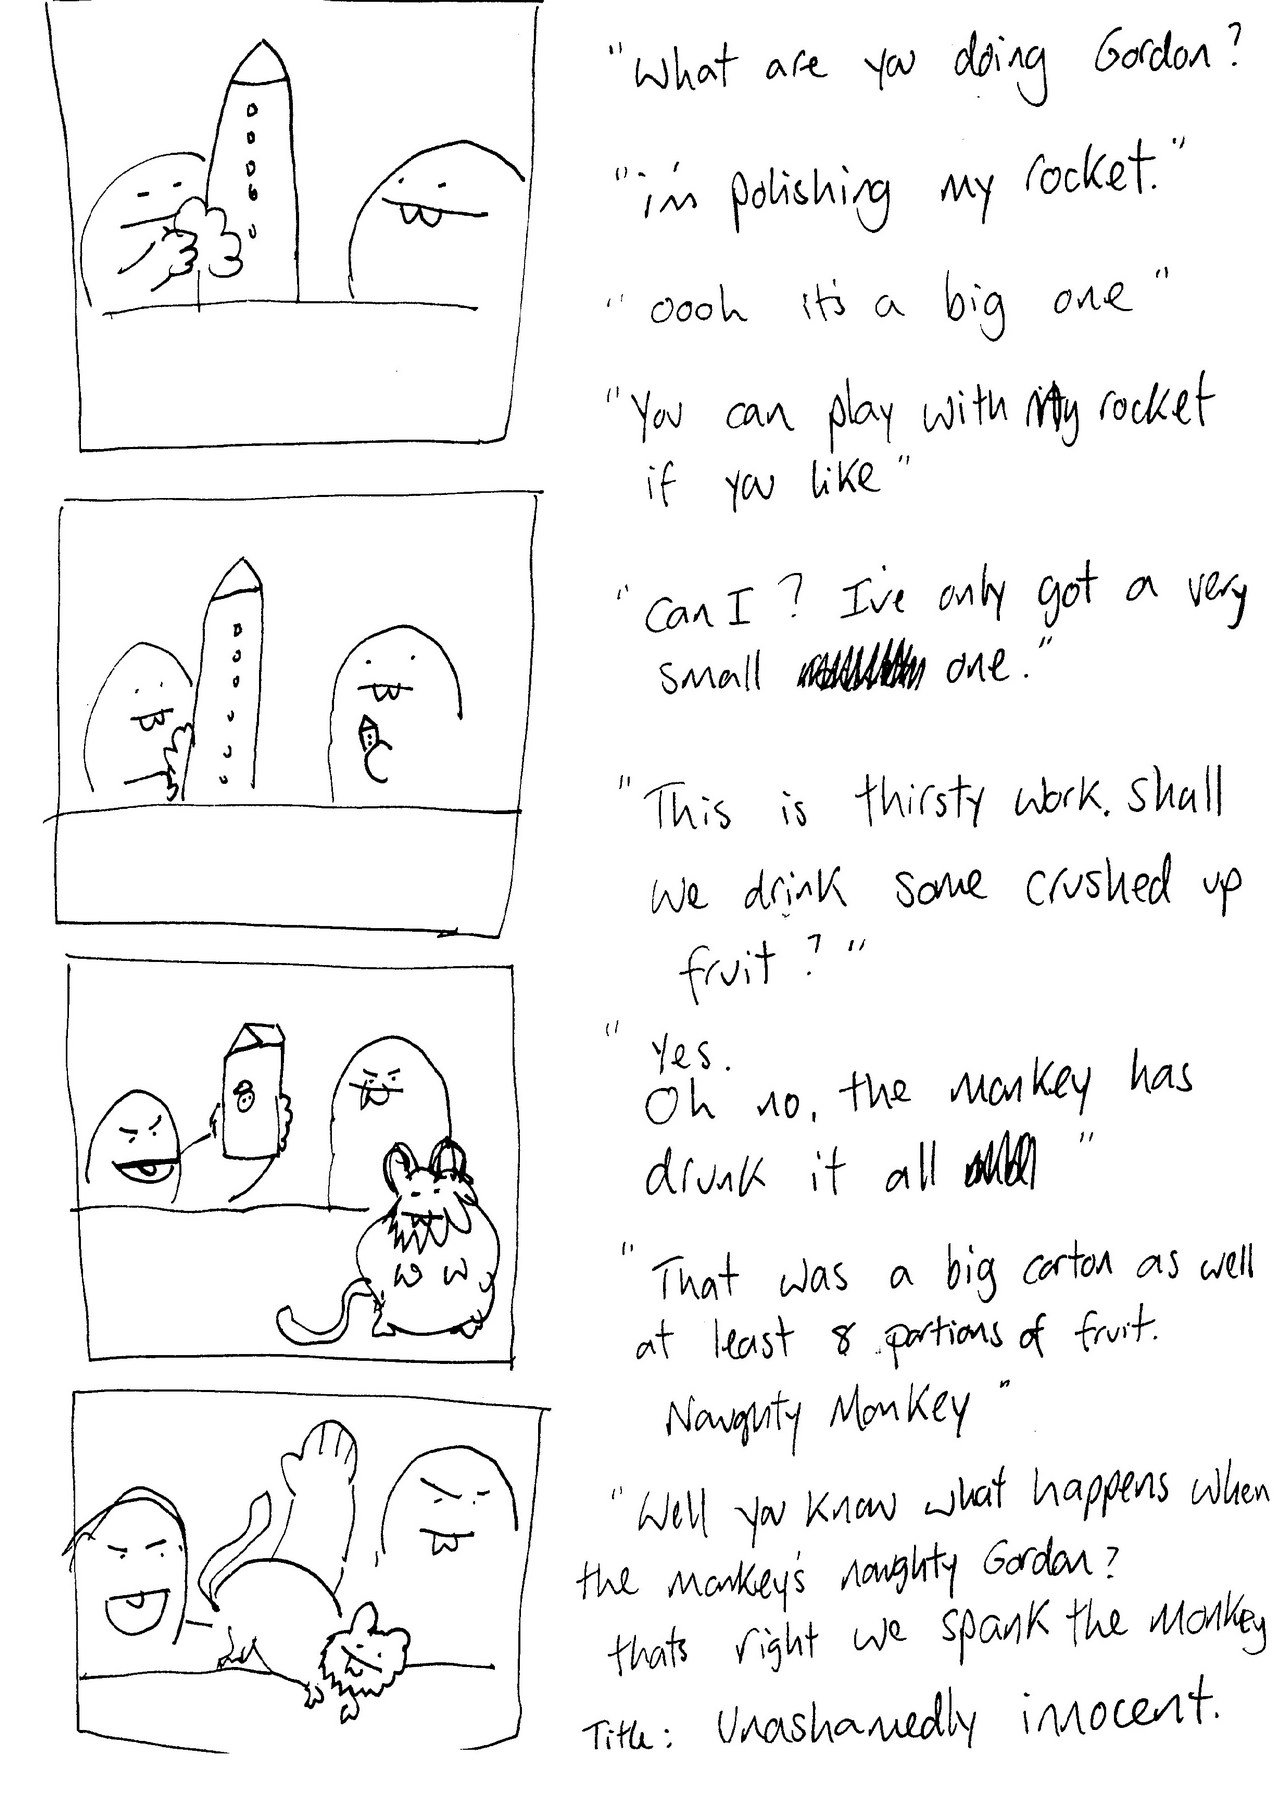 "What are you doing Gordon?
"i'm polishing my rocket."
"oooh it's a big one"
"You can play with my rocket
if you like"
"Can I? I've only got a very
small one."
"This is thirsty work. Shall
we drink some crushed up
fruit?"
"Yes.
Oh no, the monkey has
drunk it all"
"That was a big carton as well
at least 8 portions of fruit.
Naughty Monkey"
"Well you know what happens when
the monkey's naughty Gordon?
thats right we spank the monkey
Title: Unashamedly innocent.